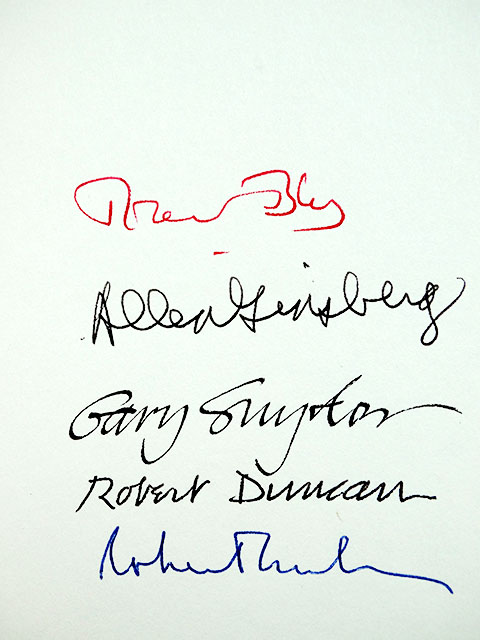 Robert Bly
Allen Ginsberg
Gary Snyder
Robert Duncan
Robert